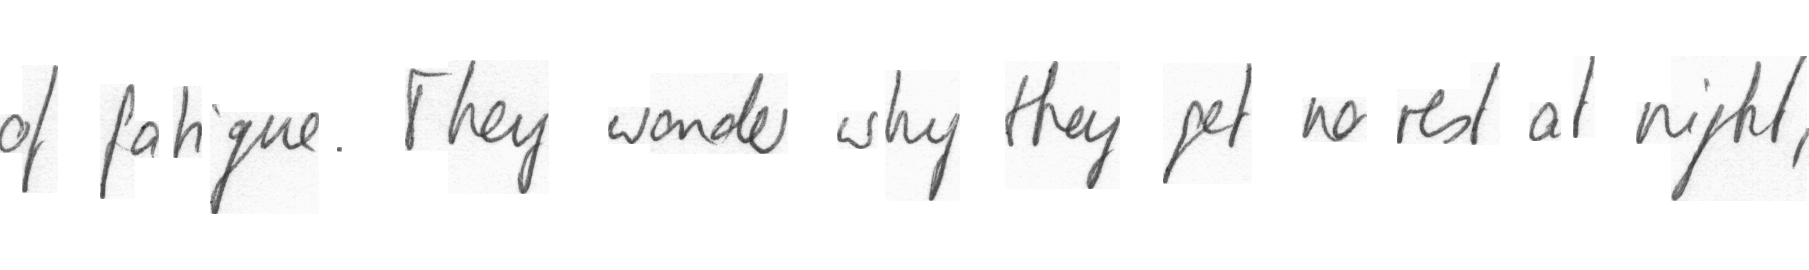 of fatigue. They wonder why they get no rest at night,